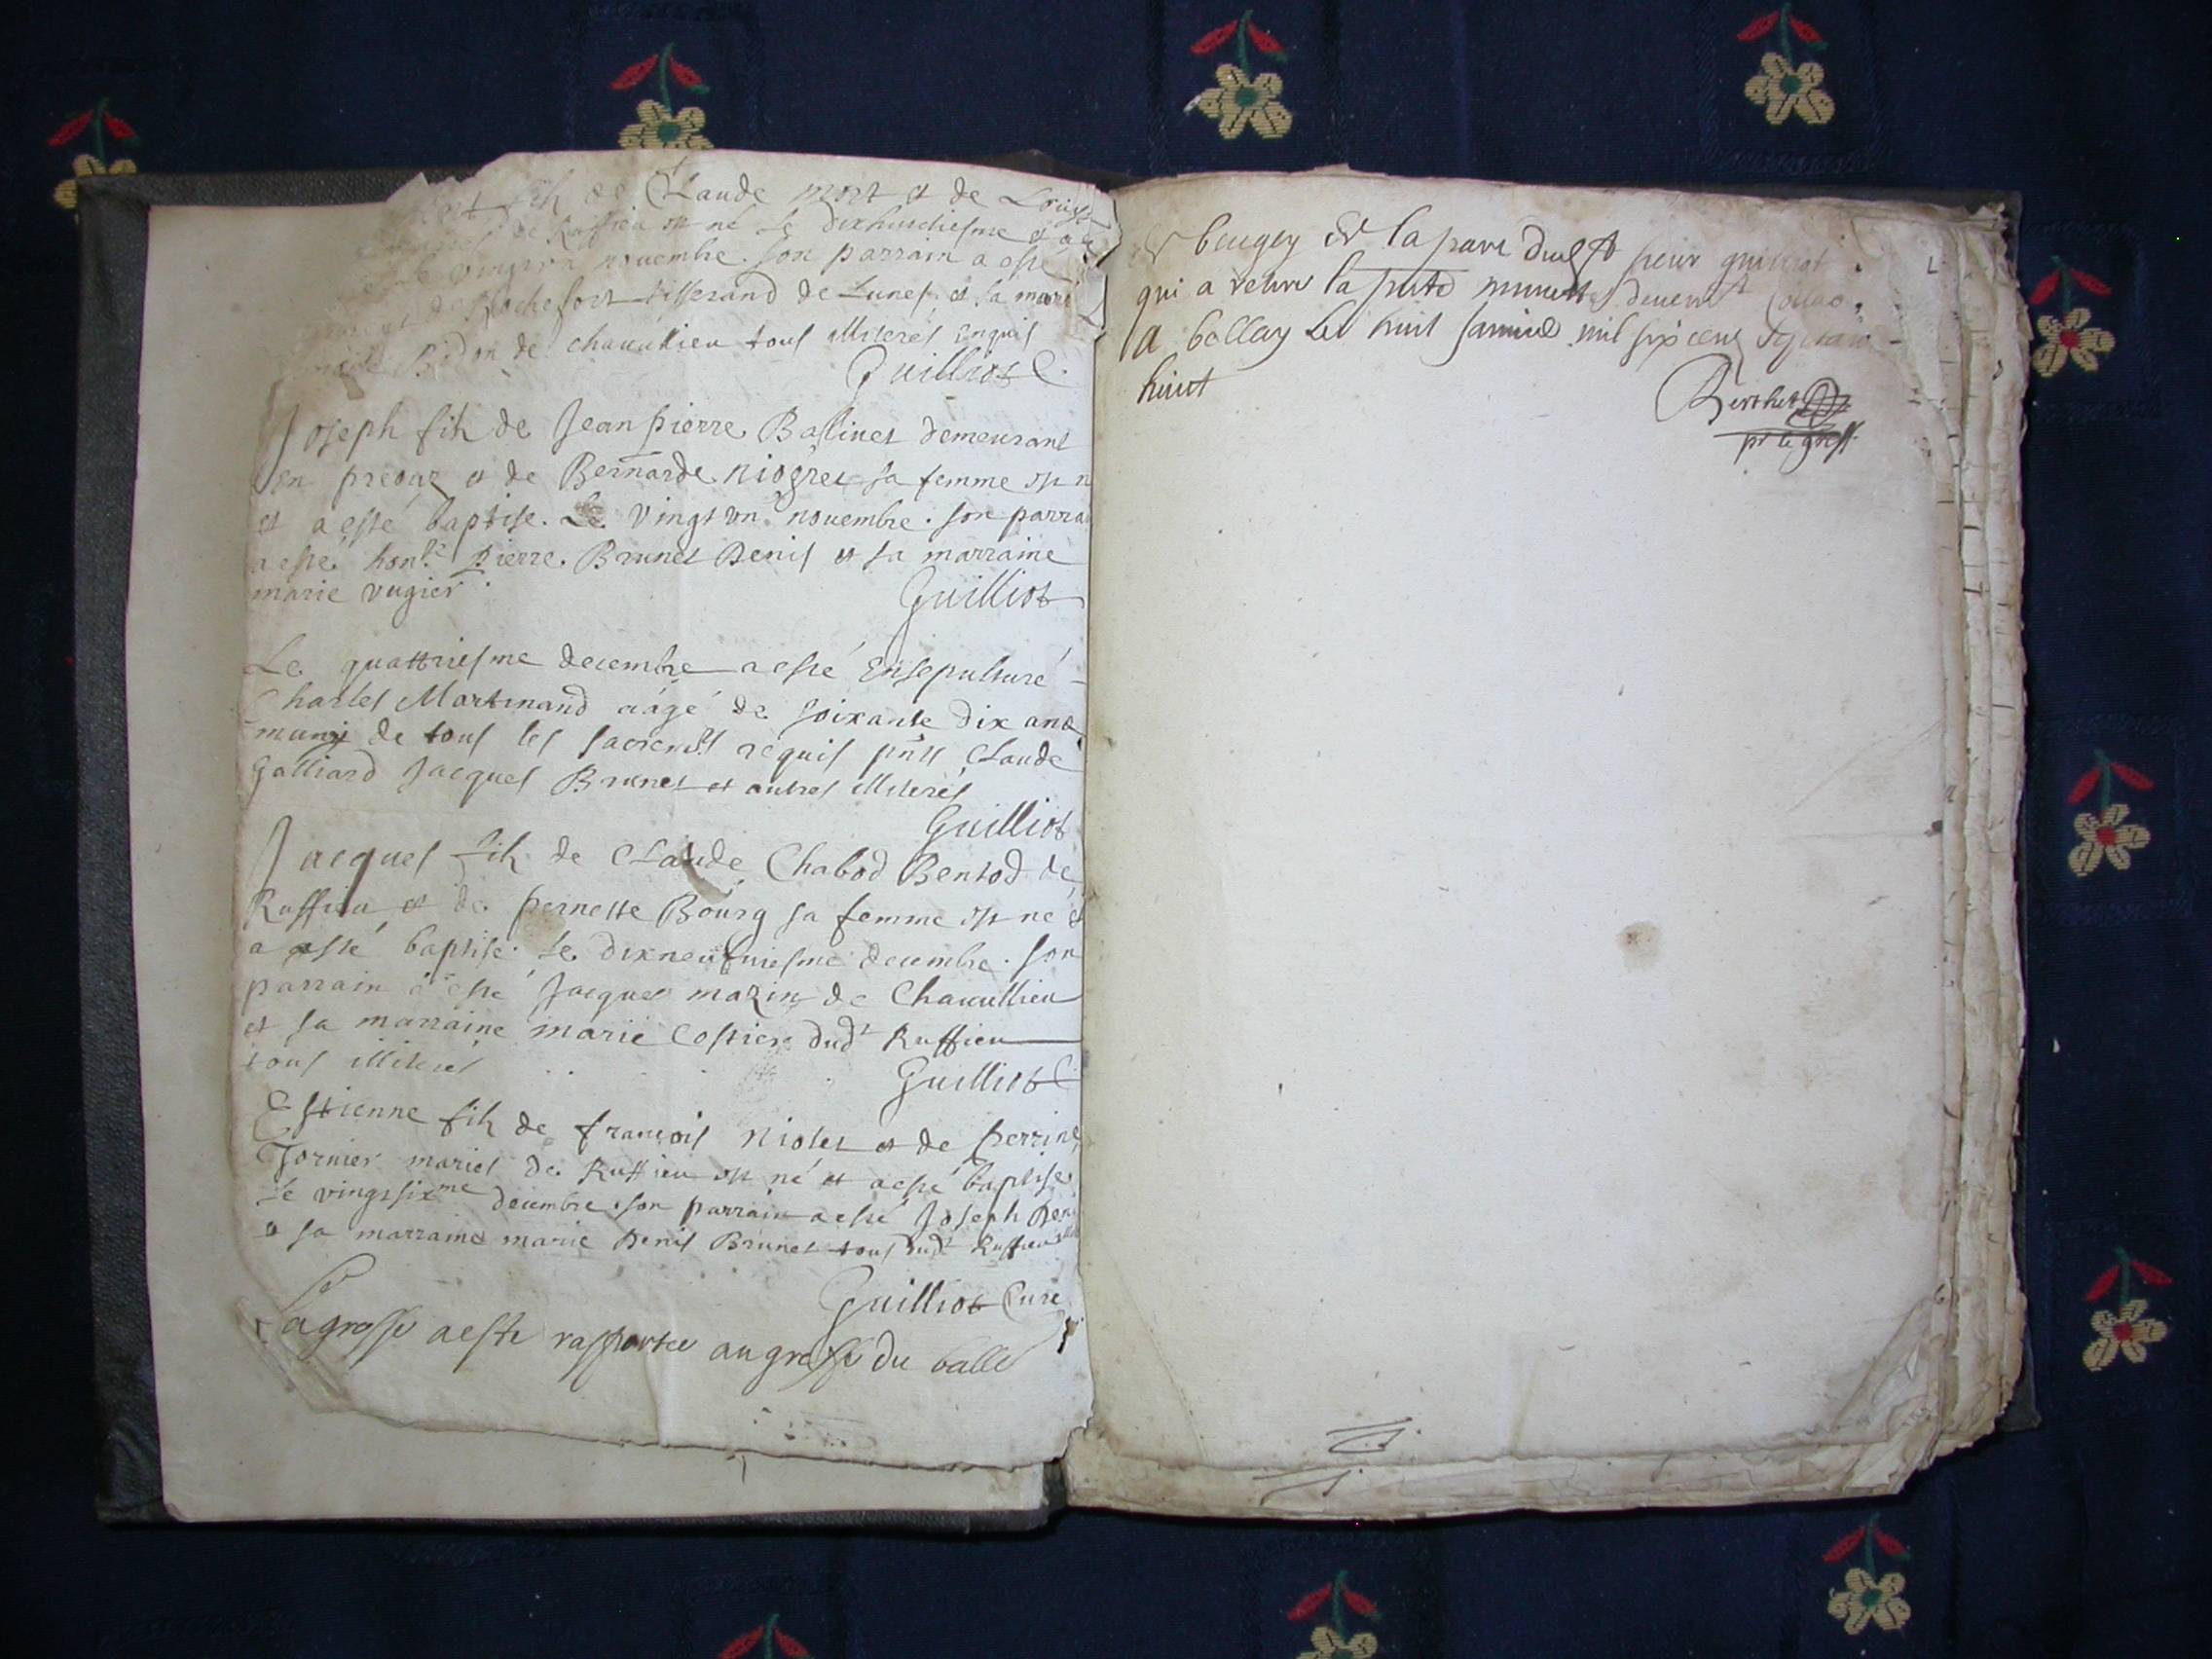 fils de Claude mort et de Louise
de Ruffieu est né le dixhuictiesme et a
le vingt un novembre. son parrain a esté
de Rochefort tisserand de Lunes et sa marr
Bidon de chavuilieu tous illiterés enquis
Guilliot C.
Joseph fils de Jean pierre Ballinet demeurant
en preoux et de Bernarde niogret sa femme est n
et a esté baptise. Le vingt un novembre. son parra
a esté honble pierre. Brunet Denis et sa marraine
marie vugier
Guilliot
Le quattriesme decembre a esté Ensepulturé
Charles Martinand aagé de soixante dix ans
muny de tous les sacremts requis pnts Claude
Galliard Jacques Brunet et autres illiterés
Guilliot
Jacques fils de Claude Chabod Bentod de
Ruffieu et de pernette Bourg sa femme est né et
a esté baptisé le dixneufviesme decembre. son
parrain a esté Jacques mazin de Chavuillieu
et sa marraine marie Costier dudt Ruffieu
tous illiterés
Guilliot C
Estienne fils de françois niolet et de perrine
Tornier mariés de Ruffieu est né et a esté baptise
le vingtsixme decembre. son parrain a esté Joseph Den
et sa marraine marie Denis Brunet tous dudt Ruffieu
Guilliot Curé
La grosse a esté rapportee au greffe du balle
beugey de la part dudt sieur guilliot
qui a retire la pnte minutte
A bellay le huit janvier mil six cent septante
huict
Berthet
pr le greff